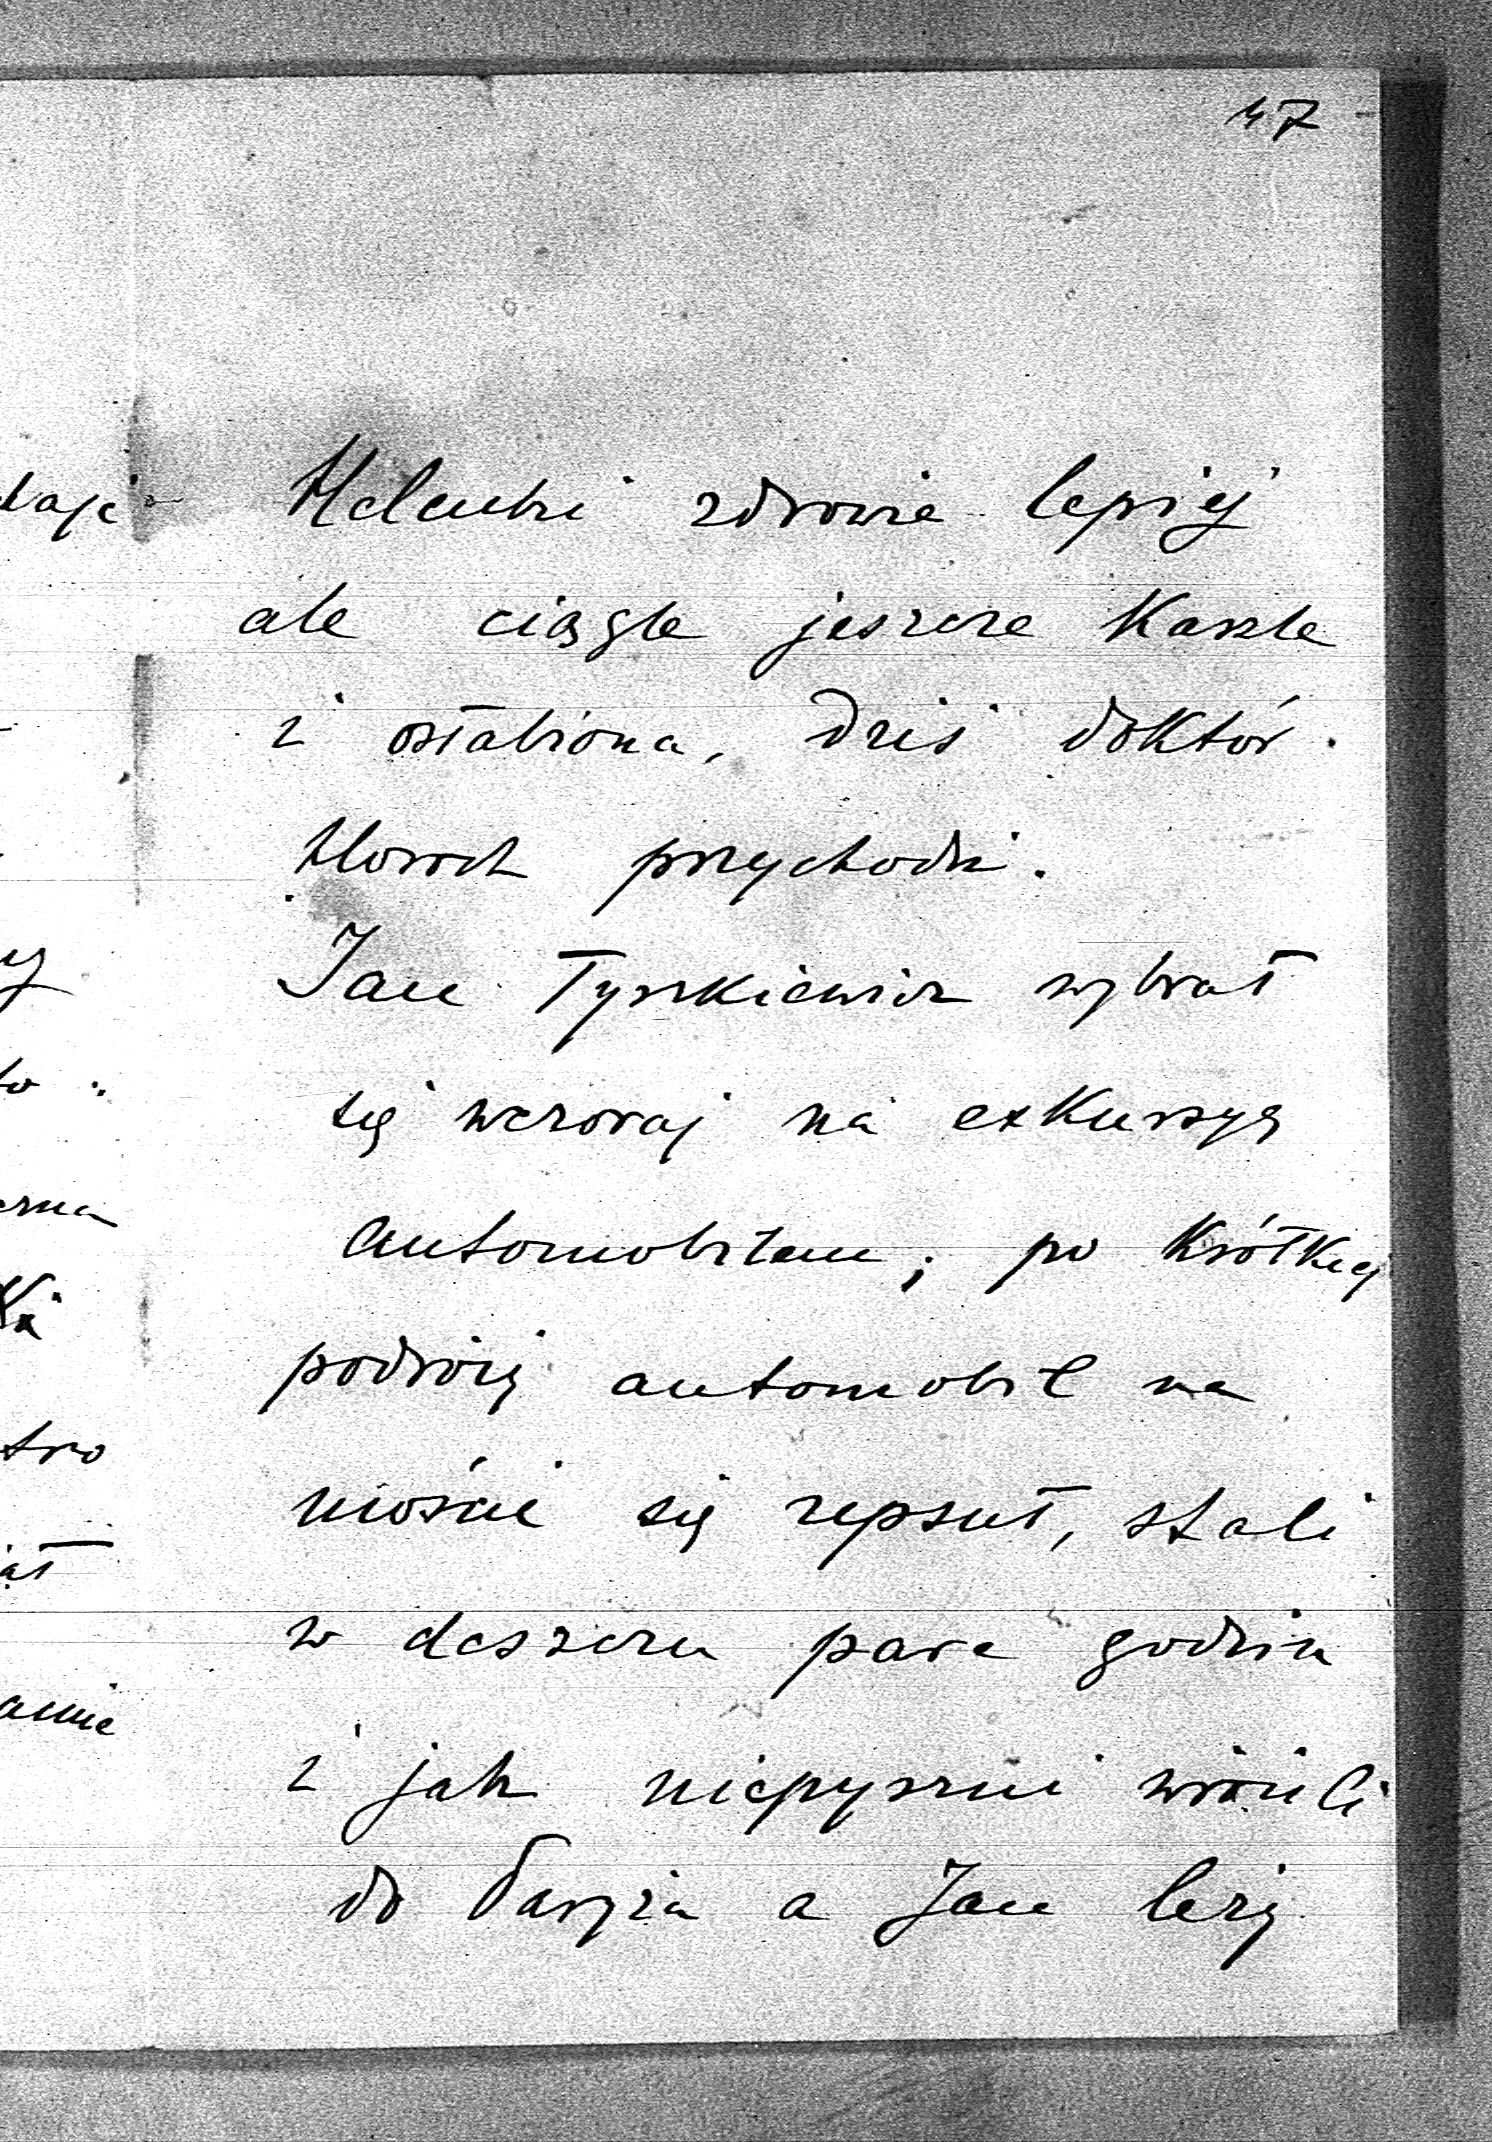 47
Helenki zdrowie lepiej
ale ciągle jeszcze Kaszle
i osłabiona, dziś doktór
Horoch przychodzi.
Jan Tyszkiewicz wybrał
się wczoraj na exkursyę
automobilem, po krótkiej
podróży automobil na
moście się zepsuł, stali
w deszczu pare godzin
i jak niepyszni wrócili
do Paryża a Jan leży